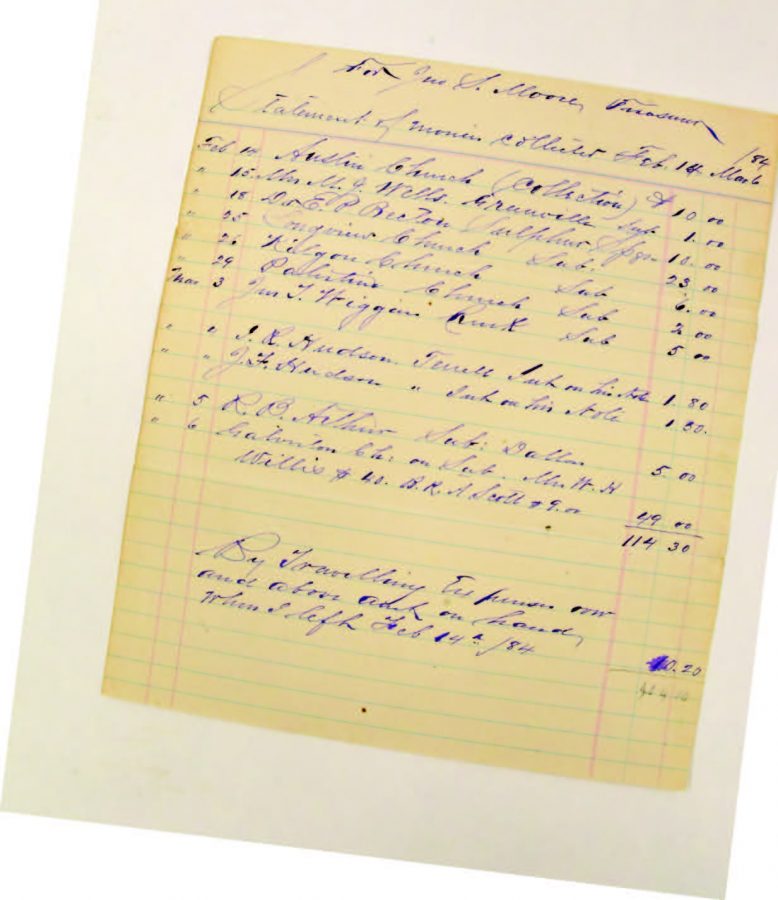 For Jno S. Moore, Treasurer
Statement of monies collected Feb. 14 Mar 6 /84
Feb 14 Austin Church (Collection) $ 10 00
" 15 Mrs M. J. Wells. Greenville Sub 1.00
" 18 Dr E. P. Becton Sulphur Spgs 10.00
" 25 Longview Church Sub. 23.00
" 26 Kilgore Church Sub 6.00
" 29 Palestine Church Sub 2 00
Mar 3 Jno T. Wiggins Rusk Sub 5 00
" " J. R. Hudson. Terrell Int on his Note 1.80
" " J. F. Hudson " Int on his Note 1.50.
" 5 R. B. Arthur Sub: Dallas 5.00
" 6 Galveston Ch: on Sub. Mrs W. H
Willis $ 40. A. R. A Scott $ 9.00 49 00
114 30
By Travelling Expenses over
and above amt on hand,
when I left Feb 14th /84 10.20